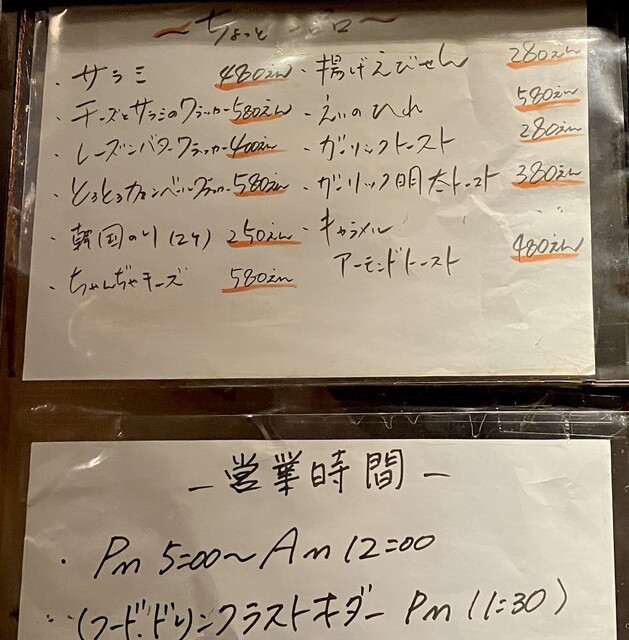 〜ちょっと一品〜
・サラミ 480えん
・チーズとサラミのクラッカー 580えん
・レーズンバタークラッカー 400えん
・とろとろカマンベールクラッカー 580えん
・韓国のり(2ケ) 250えん
・ちゃんぢゃチーズ 580えん
・揚げえびせん 280えん
・えいのひれ 580えん
・ガーリックトースト 280えん
・ガーリック明太トースト 380えん
・キャラメル
アーモンドトースト 480えん
-営業時間-
・Pm 5:00〜Am 12:00
(フード.ドリンクラストオーダー Pm 11:30)